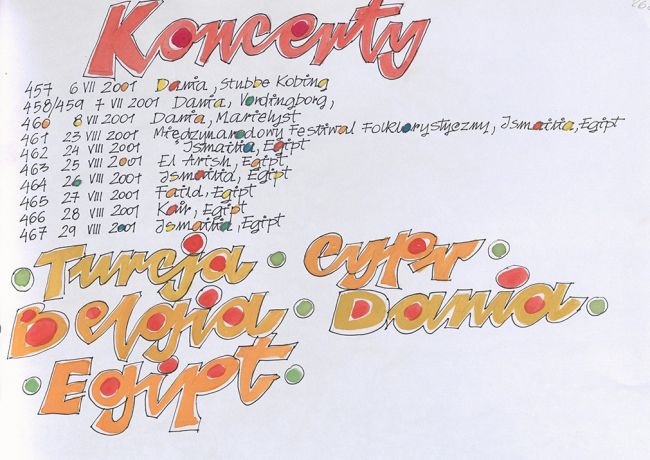 Koncerty
457 6 VII 2001 Dania, Stubbe Kobing
458/459 7 VII 2001 Dania, Vordingborg,
460 8 VII 2001 Dania, Marielyst
461 23 VIII 2001 Międzynarodowy Festiwal Folklorystyczny, Ismailia, Egipt
462 24 VIII 2001 " Ismailia, Egipt
463 25 VIII 2001 El Arish, Egipt
464 26 VIII 2001 Ismailia, Egipt
465 27 VIII 2001 Faild, Egipt
466 28 VIII 2001 Kair, Egipt
467 29 VIII 2001 Ismailia, Egipt
Turcja Cypr
Belgia Dania
Egipt